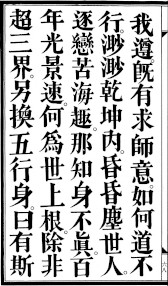 我噵。既有求師意。如何道不
行。渺渺乾坤內。昏昏塵世人。
逐戀苦海趣。那知身不真。百
年光景速。何為世上根。除非
超三界。另換五行身。曰有斯